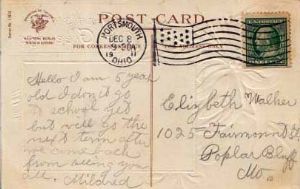 POST CARD
FOR CORRESPONDENCE
PORTSMOUTH
DEC 8
19 11
OHIO
Hello I am 5 year
old I don't go
to school yet
but will go the
next term after
we come back
from seeing you
all. Mildred
Elizabeth Walker
1025 Fairmount St
Poplar Bluff
Mo.